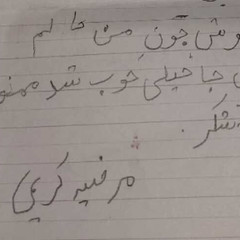 چون من حالم
جا خیلی خوب شد ممنو
تشکر.
مرضیه کریمی